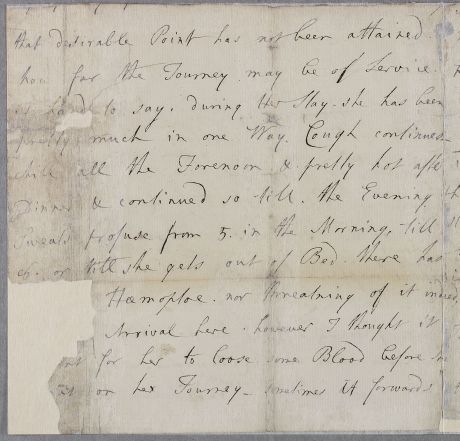 that desirable Point has not been attained.
how far the Journey may be of Service
is hard to say. during her Stay she has been
pretty much in one Way. Cough continues
chill all the Forenoon & pretty hot after
Dinner & continued so till the Evening
Sweats profuse from 5. in the Morning till
6. or till she gets out of Bed. There has
Hæmoptoe. nor threatning of it
Arrival here. however I thought it
for her to loose some Blood before
out on her Journey_ sometimes it forwards